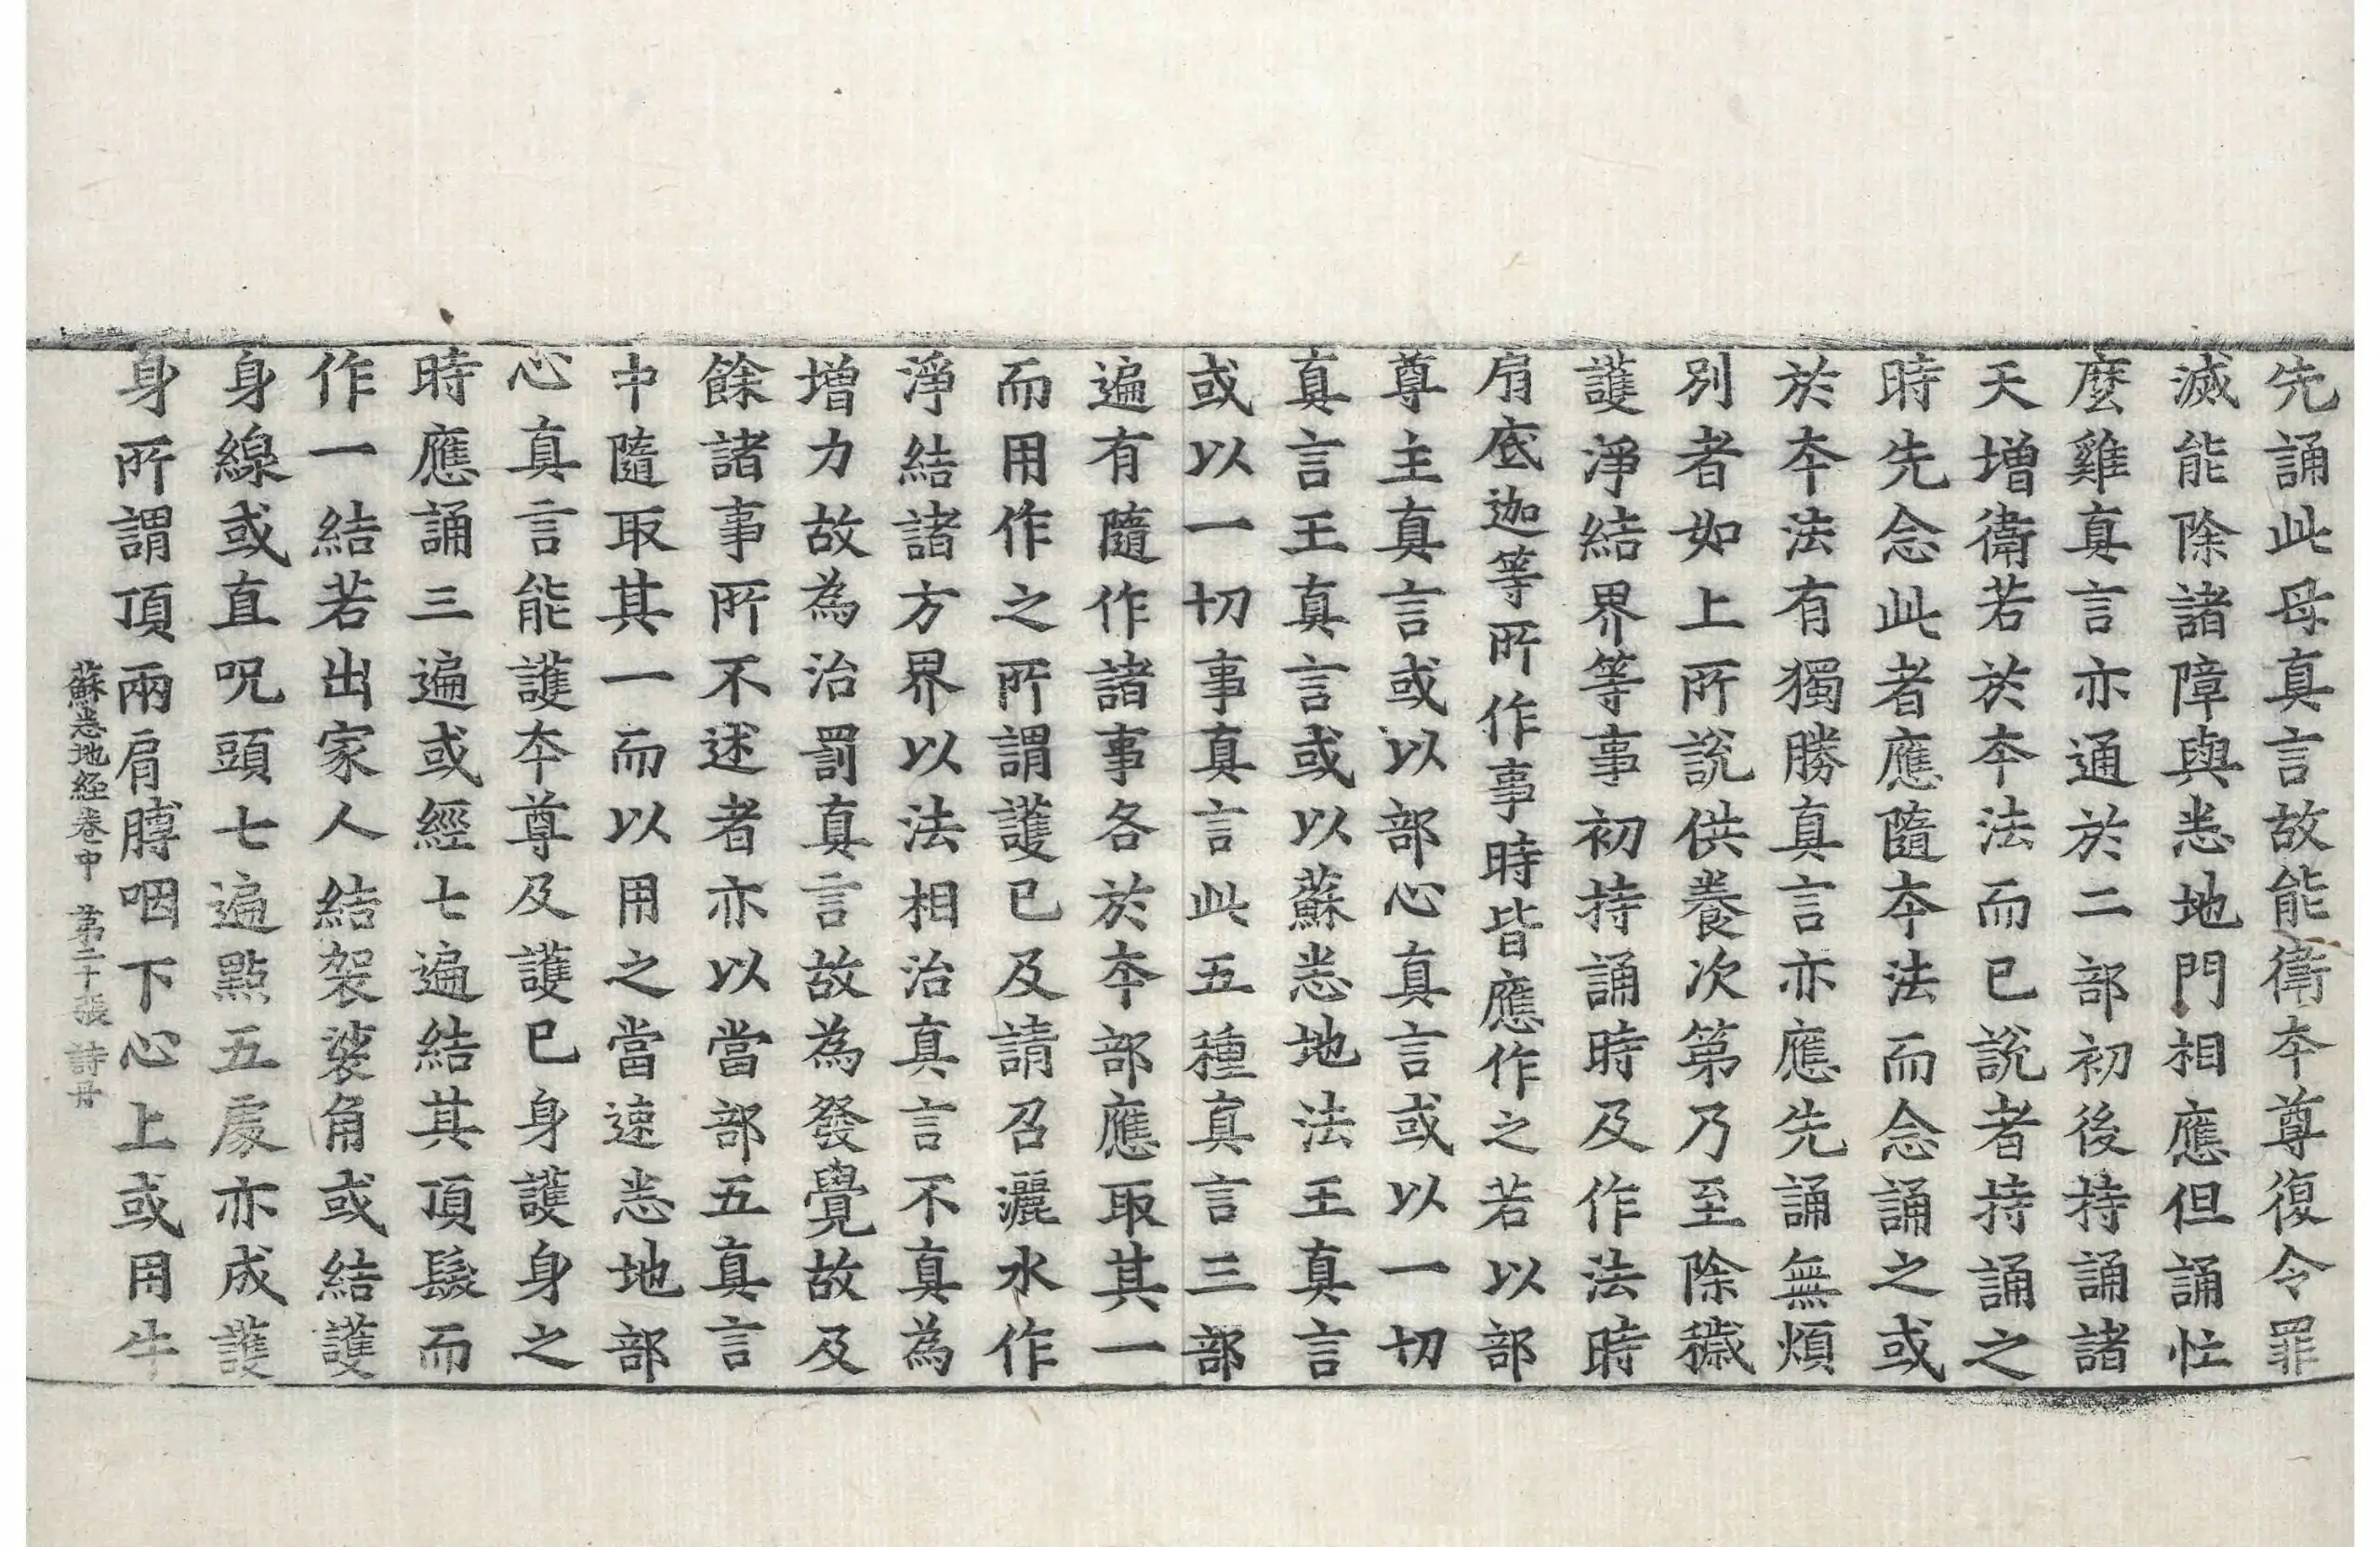 先誦此母真言故能衛夲尊復令罪
滅能除諸障與悉地門相應但誦忙
麼雞真言亦通於二部初後持誦諸
天增衛若於夲法而已說者持誦之
時先念此者應隨夲法而念誦之或
於夲法有獨勝真言亦應先誦無煩
別者如上所說供養次第乃至除穢
護淨結界等事初持誦時及作法時
扇底迦等所作事時皆應作之若以部
尊主真言或以部心真言或以一切
真言王真言或以蘇悉地法王真言
或以一切事真言此五種真言三部
遍有隨作諸事各於夲部應取其一
而用作之所謂護已及請召灑水作
淨結諸方界以法相治真言不真為
增力故為治罰真言故為發覺故及
餘諸事所不述者亦以當部五真言
中隨取其一而以用之當速悉地部
心真言能護夲尊及護已身護身之
時應誦三遍或經七遍結其頂髮而
作一結若出家人結袈裟角或結護
身線或直呪頭七遍點五處亦成護
身所謂頂兩肩膊咽下心上或用牛
蘇悉地経卷中 第二十張 詩